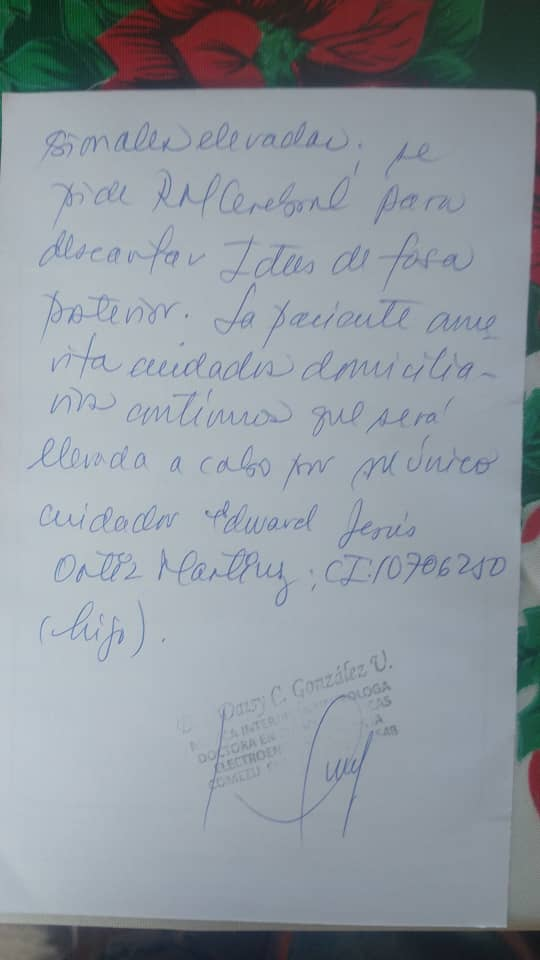 sionales elevadas; se
pide RM Cerebral para
descartar Ictus de fosa
posterior. La paciente ame-
rita cuidados domicilia-
rios continuos que será
llevada a cabo por su único
cuidador Edward Jesús
Ortiz Martínez; CI:10706250
(hijo).
Daisy C. González V.
DOCTORA EN